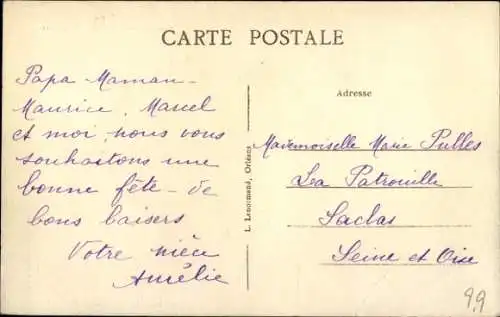 CARTE POSTALE
Papa Maman –
Maurice, Marcel
et moi nous vous
souhaitons une
bonne fête – de
bons baisers
Votre nièce
Amélie
L. Lenormand, Orléans
Adresse
Mademoiselle Marie Pulles
La Patrouille
Saclas
Seine et Oise
99